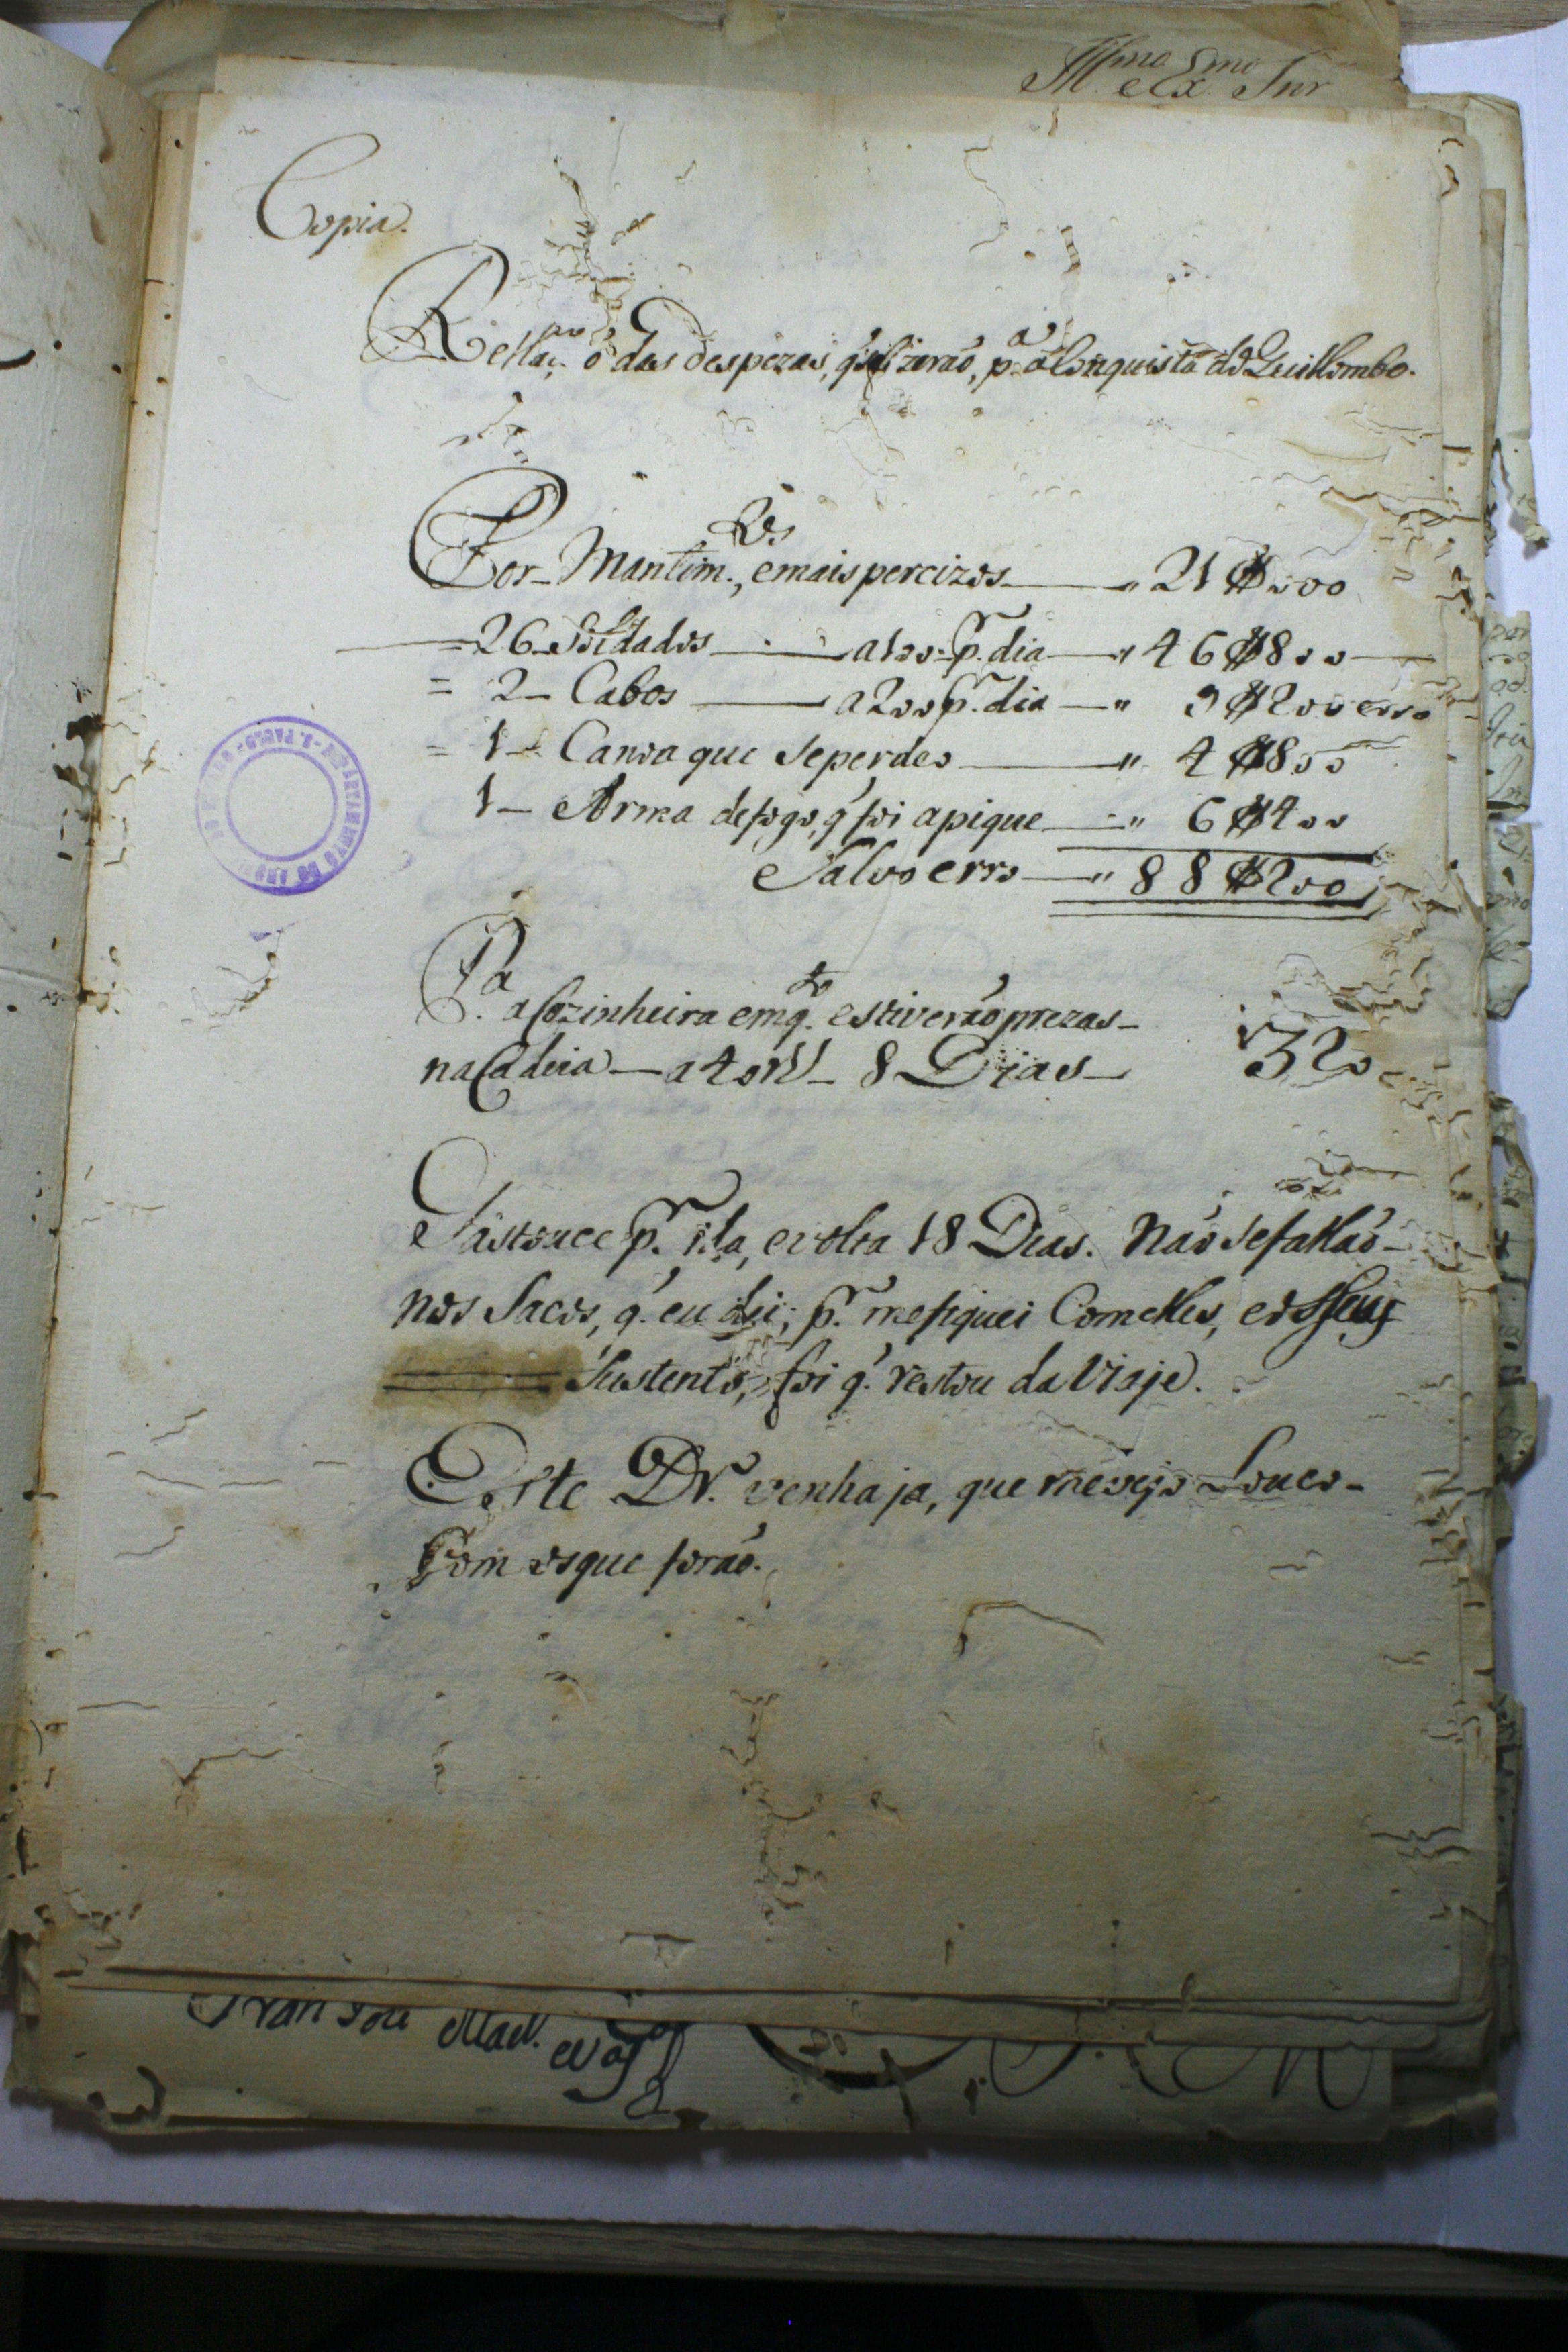 Illmo e Exmo Snr
Copia.
Rellaçaõ das despezas, q' se fizeraõ, pa. a Conquista do Quillombo.
Por Mantim.tos, e mais percizos — " 21$000
= 26 Soldados — a 100 pr. dia — " 46$800
= 2 — Cabos — a 200 pr. dia — " 9$200 erro
= 1 — Canoa que se perdeo — " 4$800
1 — Arma de fogo, q' foi apique — " 6$400
Salvo erro — " 88$200
Pa. a Cozinheira emq.to estiveraõ prezas
na Cadeia — a 40 rs — 8 Dias — 320
Gastouce pr. ida, e volta 18 Dias. Naõ se fallaõ
nos Sacos, q. eu dei; pr. me fiquei Com elles, e o seu
Sustento, foi q. restou da Viaje.
Este Dr. venha ja, que me vejo Louco
Com os que foraõ.